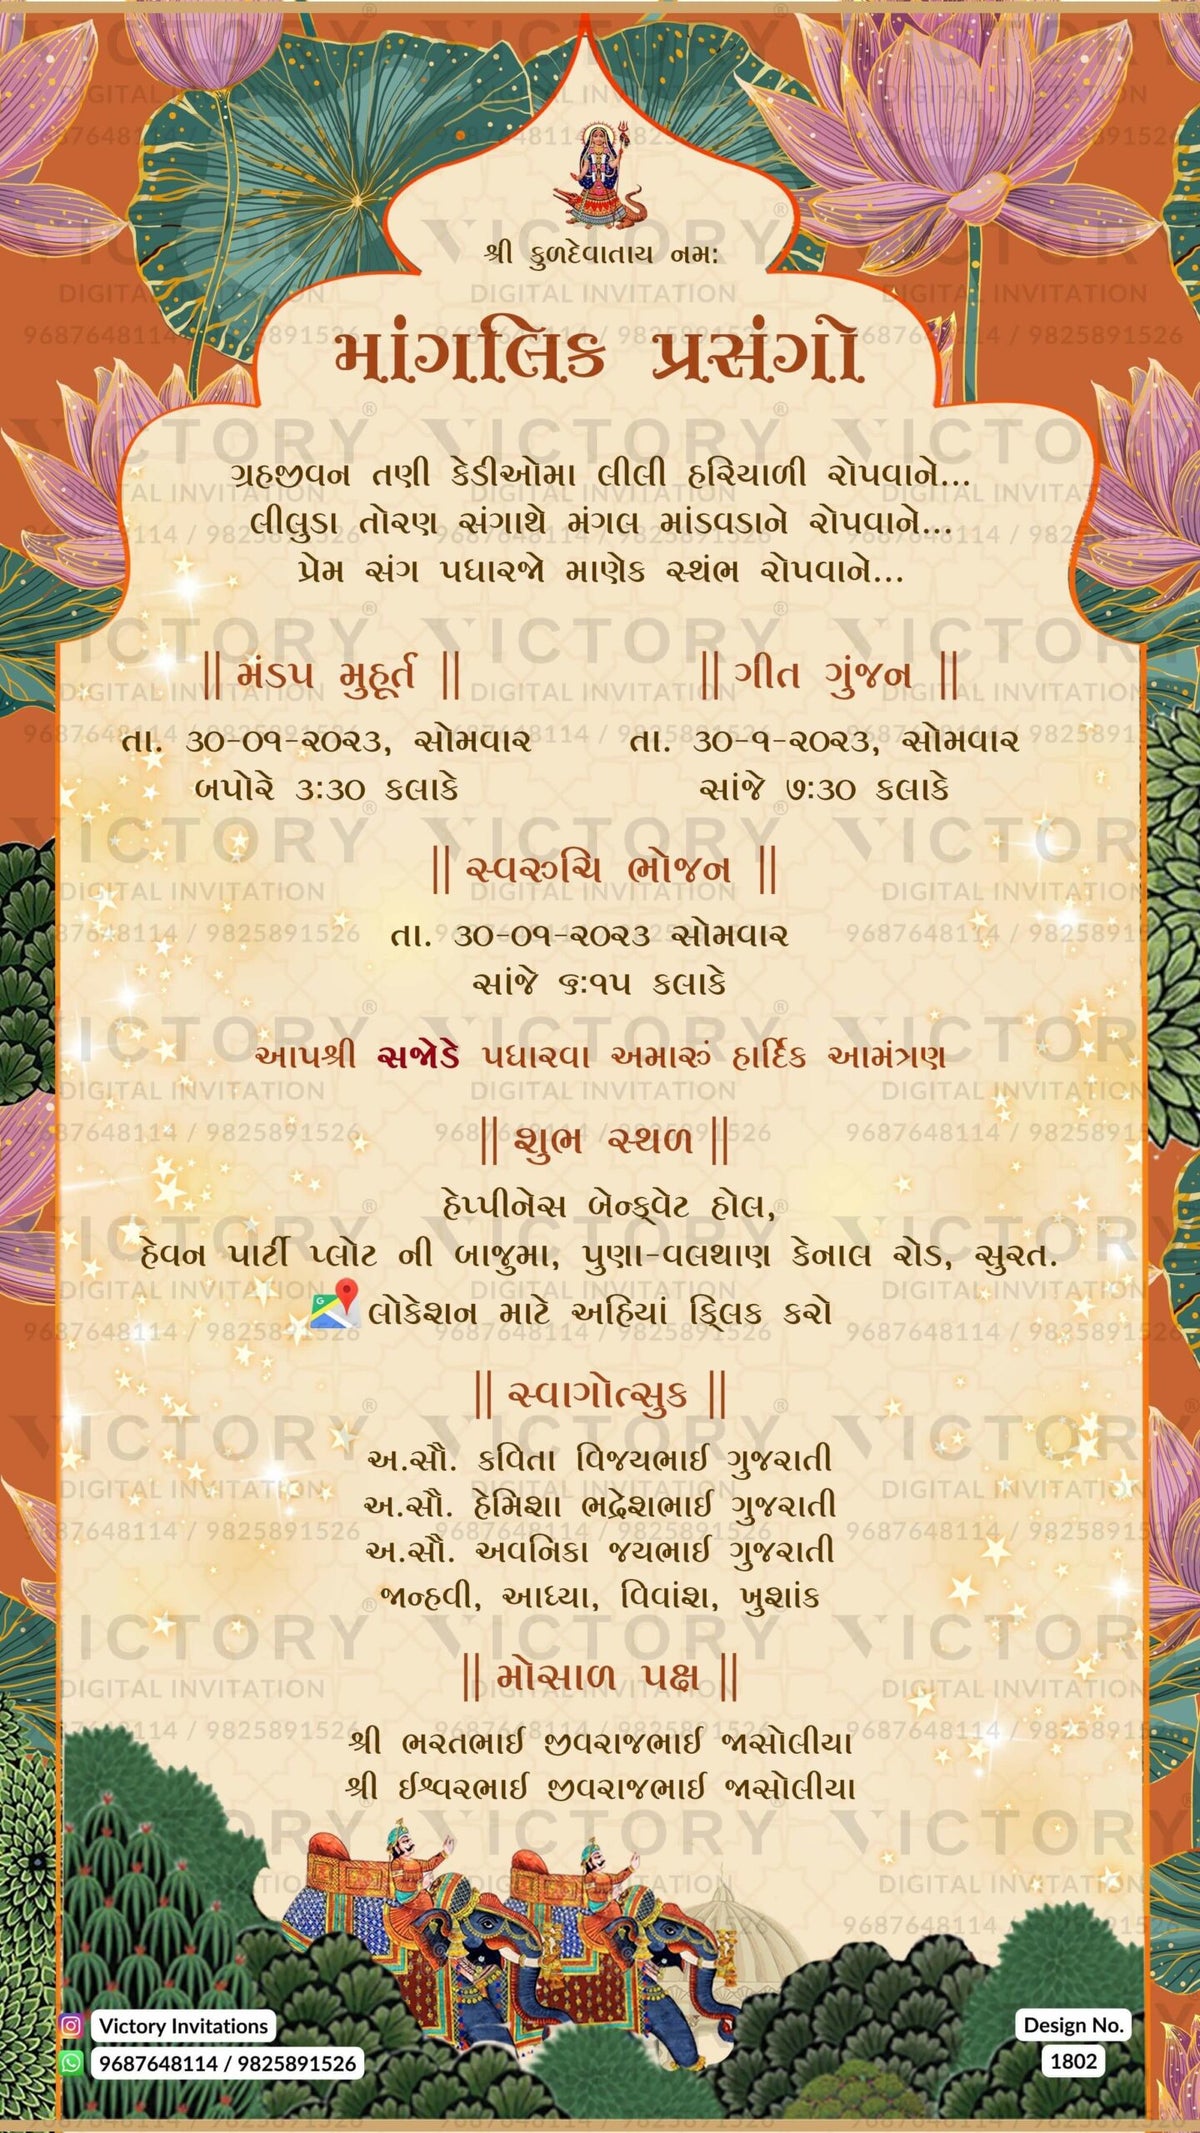 શ્રી કુળદેવાતાય નમઃ
માંગલિક પ્રસંગો
ગ્રહજીવન તણી કેડીઓમા લીલી હરિયાળી રોપવાને...
લીલુડા તોરણ સંગાથે મંગલ માંડવડાને રોપવાને...
પ્રેમ સંગ પધારજો માણેક સ્થંભ રોપવાને...
|| મંડપ મુહૂર્ત ||
તા. ૩૦-૦૧-૨૦૨૩, સોમવાર
બપોરે ૩:૩૦ કલાકે
|| ગીત ગુંજન ||
તા. ૩૦-૧-૨૦૨૩, સોમવાર
સાંજે ૭:૩૦ કલાકે
|| સ્વરુચિ ભોજન ||
તા. ૩૦-૦૧-૨૦૨૩ સોમવાર
સાંજે ૬:૧૫ કલાકે
આપશ્રી સજોડે પધારવા અમારું હાર્દિક આમંત્રણ
|| શુભ સ્થળ ||
હેપ્પીનેસ બેન્ક્વેટ હોલ,
હેવન પાર્ટી પ્લોટ ની બાજુમા, પુણા-વલથાણ કેનાલ રોડ, સુરત.
લોકેશન માટે અહિયાં ક્લિક કરો
|| સ્વાગોત્સુક ||
અ.સૌ. કવિતા વિજયભાઈ ગુજરાતી
અ.સૌ. હેમિશા ભદ્રેશભાઈ ગુજરાતી
અ.સૌ. અવનિકા જયભાઈ ગુજરાતી
જાન્હવી, આધ્યા, વિવાંશ, ખુશાંક
|| મોસાળ પક્ષ ||
શ્રી ભરતભાઈ જીવરાજભાઈ જાસોલીયા
શ્રી ઈશ્વરભાઈ જીવરાજભાઈ જાસોલીયા
Victory Invitations
9687648114 / 9825891526
Design No.
1802
VICTORY®
DIGITAL INVITATION
9687648114 / 9825891526